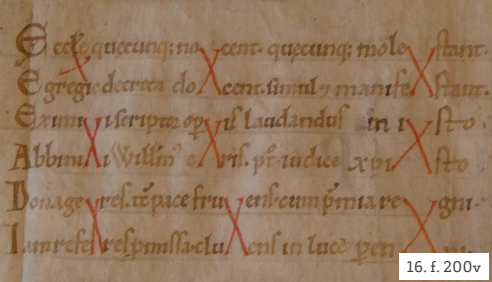 Ecclẹ quecunq; no cent. quęcunq; mole stant.
Egregie decreta do cent. simul ⁊ manife stant.
Eximi i scriptor op is laudandus in i sto.
Abbini i Willm̅ o ris. pt̅ iudice xpi sto
Bonage res. te̅ pace fru ens. cum p̅mia re gni.
Iam refe res p̅missa. clu ens in luce p̅en ni.
16. f. 200v